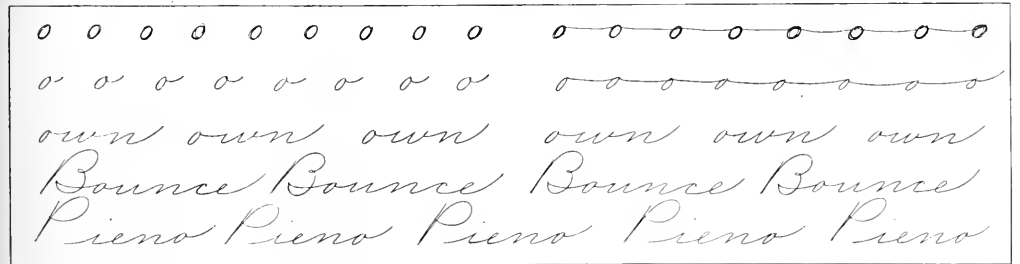 o o o o o o o o o o o o o o o o o
o o o o o o o o o o o o o o o o
own own own own own own
Bounce Bounce Bounce Bounce
Pieno Pieno Pieno Pieno Pieno